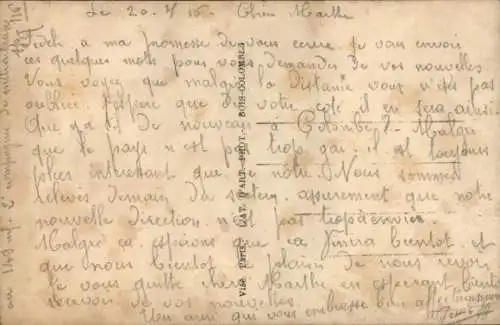 Le 20. 7/16 Chère Marthe
Fidèle à ma promesse de vous ecrire je vous envoie
ces quelques mots pour vous demander de vos nouvelles
Vous voyez que malgré la distance vous n'êtes pas
oubliée. J'espère que de votre côté il en sera ainsi
Que ça dit de nouveau à Colombes? Malgré
que le pays n'est pas trop gai. il est toujours
plus interessant que le notre. Nous sommes
relevés demain du secteur. assurement que notre
nouvelle direction n'est pas trop à envier.
Malgré ça. espérons que ça finira bientot et
que nous bientot le plaisir de nous revoir.
Je vous quitte chère Marthe en esperant bientot
recevoir de vos nouvelles.
Un ami qui vous embrasse bien affectueusement
VISÉ PARIS. L'ART PHOT. BOIS-COLOMBES
compagnie de mitrailleuses
au inf.